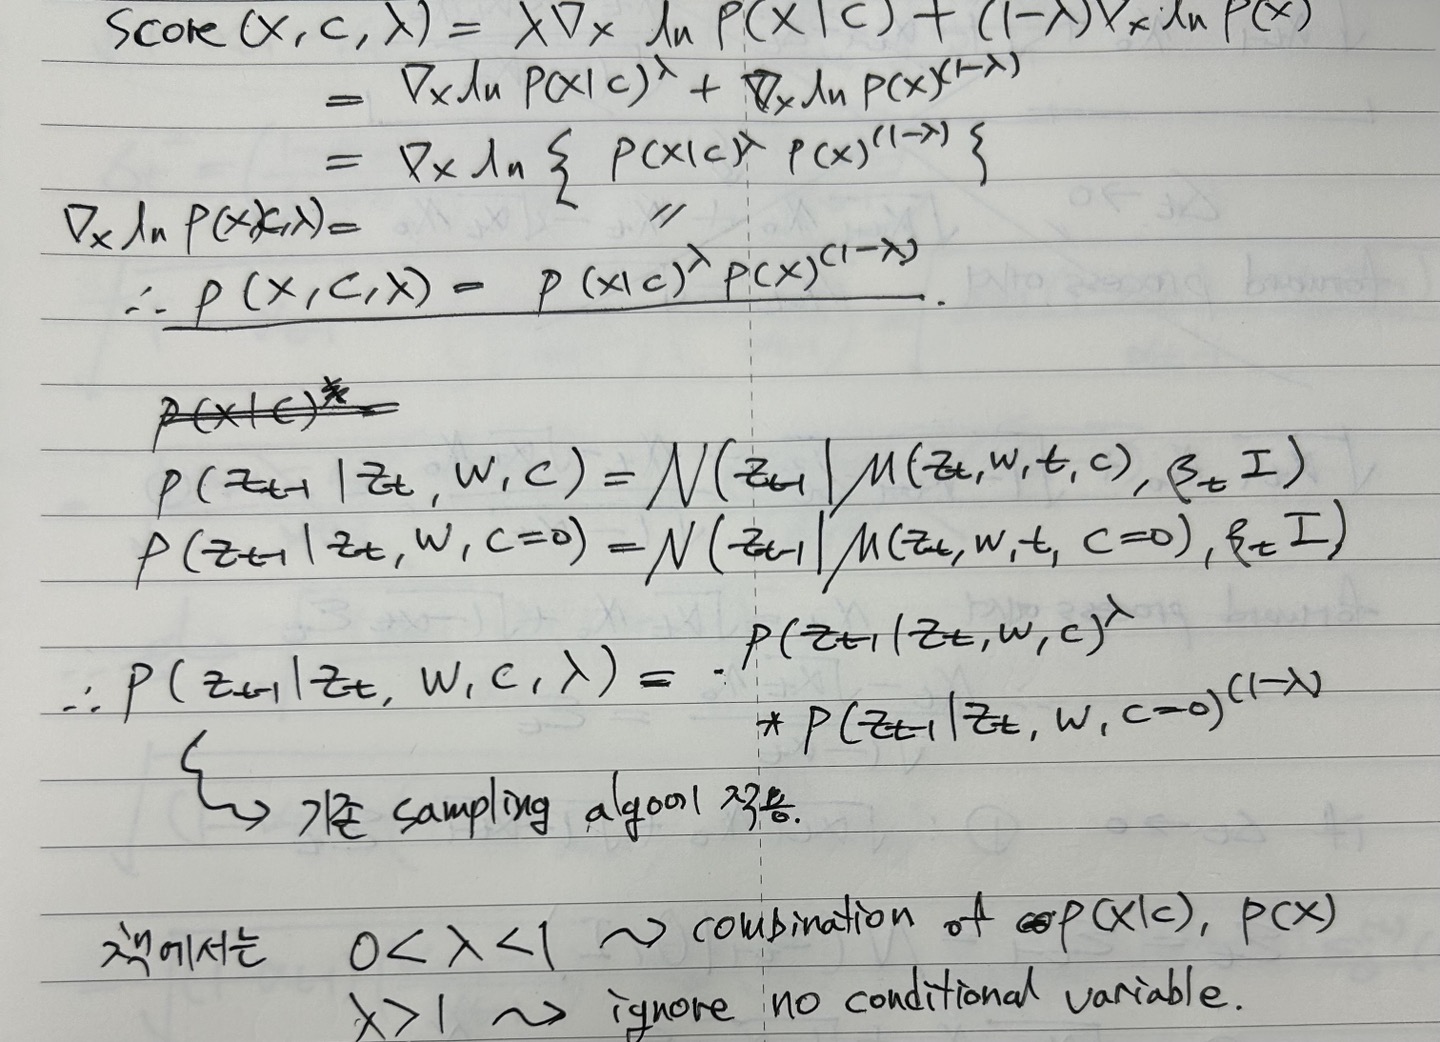 Score(x, c, λ) = λ∇x ln P(x|c) + (1-λ)∇x ln P(x)
= ∇x ln P(x|c)^λ + ∇x ln P(x)^(1-λ)
= ∇x ln { P(x|c)^λ P(x)^(1-λ) }
∇x ln P(x,c,λ) = 〃
∴ P(x, c, λ) = P(x|c)^λ P(x)^(1-λ).
P(x|c)
P(z_t-1 | z_t, w, c) = N(z_t-1 | μ(z_t, w, t, c), β_t I)
P(z_t-1 | z_t, w, c=0) = N(z_t-1 | μ(z_t, w, t, c=0), β_t I)
∴ P(z_t-1 | z_t, w, c, λ) = P(z_t-1 | z_t, w, c)^λ
* P(z_t-1 | z_t, w, c=0)^(1-λ)
기존 sampling algo에 적용.
책에서는 0<λ<1 ~> combination of P(x|c), P(x)
λ>1 ~> ignore no conditional variable.